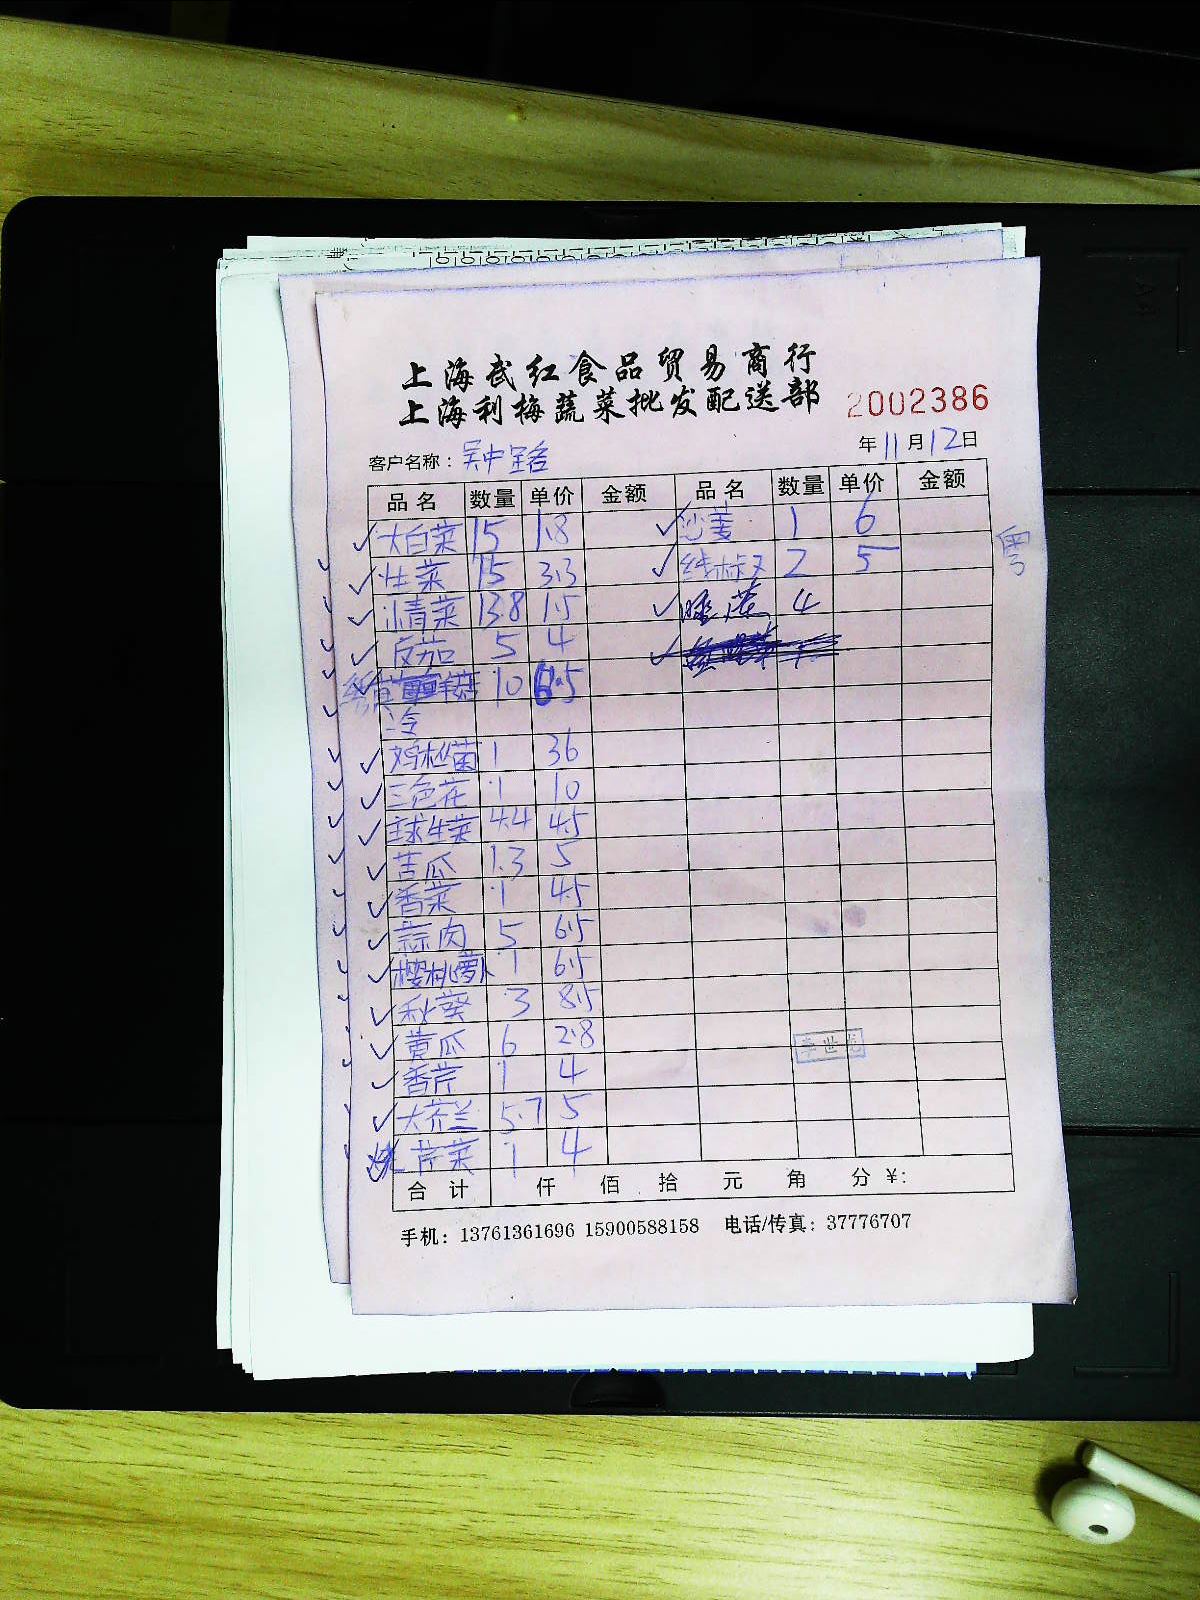 上海武红食品贸易商行
上海利梅蔬菜批发配送部
2002386
客户名称：吴中路 年11月12日
品名 数量 单价 金额 品名 数量 单价 金额
大白菜 15 1.8 沙姜 1 6
生菜 15 3.3 线椒 2 5
清菜 13.8 1.5 4
皮茄 5 4
10 6.5
冷
鸡枞菌 1 36
三色花 1 10
球生菜 4.4 4.5
苦瓜 1.3 5
香菜 1 4.5
蒜肉 5 6.5
樱桃萝卜 1 6.5
秋葵 3 8.5
黄瓜 6 2.8
香芹 1 4
大芥兰 5.7 5
芹菜 1 4
粤
李世
合计 仟 佰 拾 元 角 分 ¥:
手机：13761361696 15900588158 电话/传真：37776707